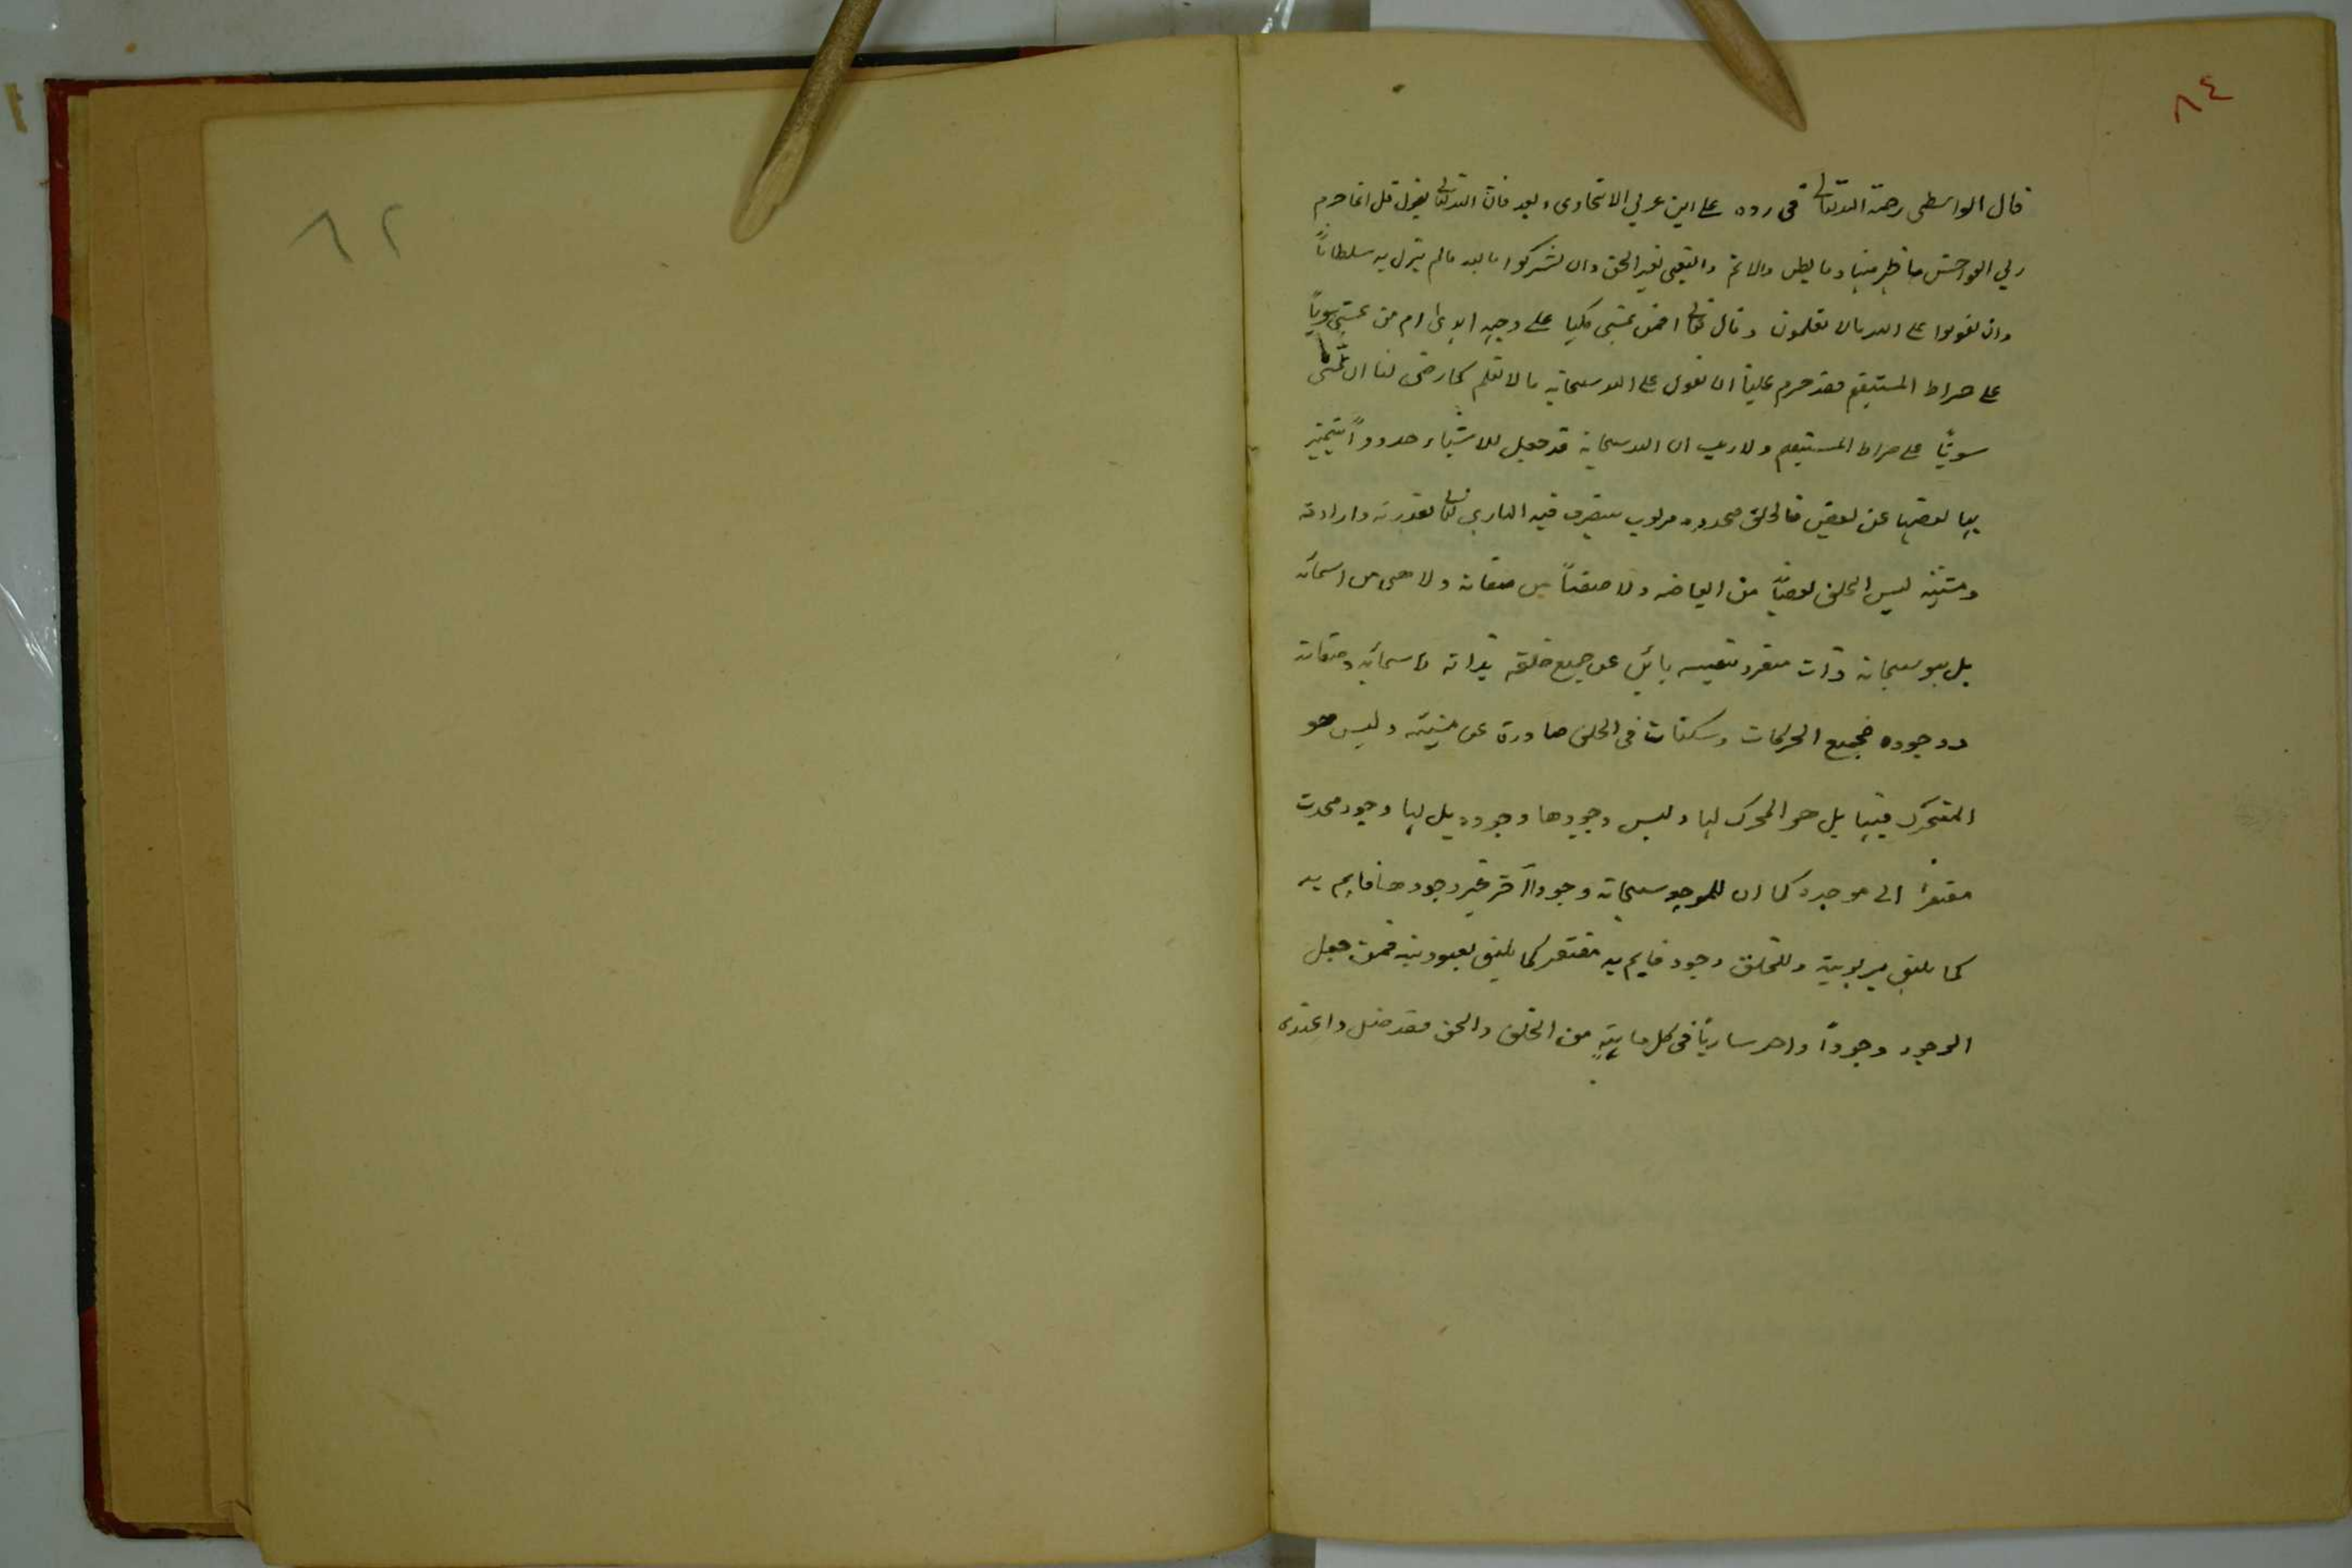 ٨٤
قال الواسطى رحمة الله تعالى فى رده على ابن عربي الاتحادى وبعد فان الله تعالى يقول قل انما حرم
ربي الفواحش ما ظهر منها وما بطن والاثم والبغى بغير الحق وان تشركوا بالله ما لم ينزل به سلطاناً
وان تقولوا على الله مالا تعلمون وقال تعالى افمن يمشى مكبا على وجهه اهدى ام من يمشى سوياً
على صراط المستقيم فقد حرم علينا ان نقول على الله سبحانه مالا نعلم كما رضى لنا ان نمشى
سوياً على صراط المستقيم ولا ريب ان الله سبحانه قد جعل للاشياء حدوداً يتميز
بها بعضها عن بعض فالخلق محدود مربوب يتصرف فيه البارى تعالى بقدرته وارادته
ومشيته ليس الخلق بعضاً من ابعاضه ولا صفتاً من صفاته ولا هى من اسمائه
بل هو سبحانه ذات منفرد بنفسه بائن عن جميع خلقه بذاته واسمائه وصفاته
ووجوده فجميع الحركات وسكنات فى الخلق صادرة عن مشيته وليس هو
المتحرك فيها بل هو المحرك لها وليس وجودها وجوده بل لها وجود محدث
مفتقراً الى موجده كما ان للموجد سبحانه وجوداً آخر غير وجودها قايم به
كما يليق بربوبية وللخلق وجود قايم به مفتقر كما يليق بعبودية فمن جعل
الوجود وجوداً واحد سارياً فى كل ماهيةٍ من الخلق والحق فقد ضل واعتدى
٨٢